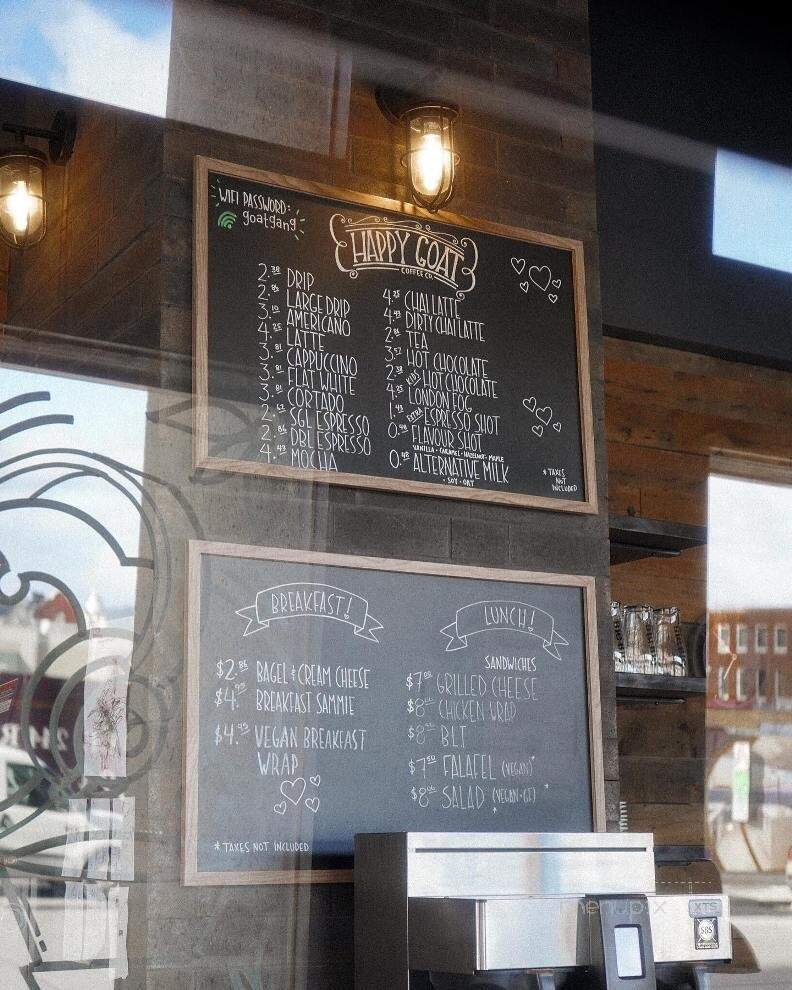 WIFI PASSWORD:
goatgang
HAPPY GOAT
COFFEE CO.
2.38 DRIP
2.86 LARGE DRIP
3.10 AMERICANO
4.25 LATTE
3.81 CAPPUCCINO
3.81 FLAT WHITE
3.81 CORTADO
2.62 SGL ESPRESSO
2.86 DBL ESPRESSO
4.49 MOCHA
4.25 CHAI LATTE
4.49 DIRTY CHAI LATTE
2.86 TEA
3.57 HOT CHOCOLATE
2.38 KIDS HOT CHOCOLATE
4.25 LONDON FOG
1.43 EXTRA ESPRESSO SHOT
0.48 FLAVOUR SHOT
VANILLA • CARAMEL • HAZELNUT • MAPLE
0.48 ALTERNATIVE MILK
• SOY • OAT
* TAXES
NOT
INCLUDED
BREAKFAST!
$2.86 BAGEL & CREAM CHEESE
$4.99 BREAKFAST SAMMIE
$4.99 VEGAN BREAKFAST
WRAP
* TAXES NOT INCLUDED
LUNCH!
SANDWICHES
GRILLED CHEESE
CHICKEN WRAP
BLT
$7.50 FALAFEL (VEGAN)*
SALAD (VEGAN+GF) *
menupix
XTS
SBS